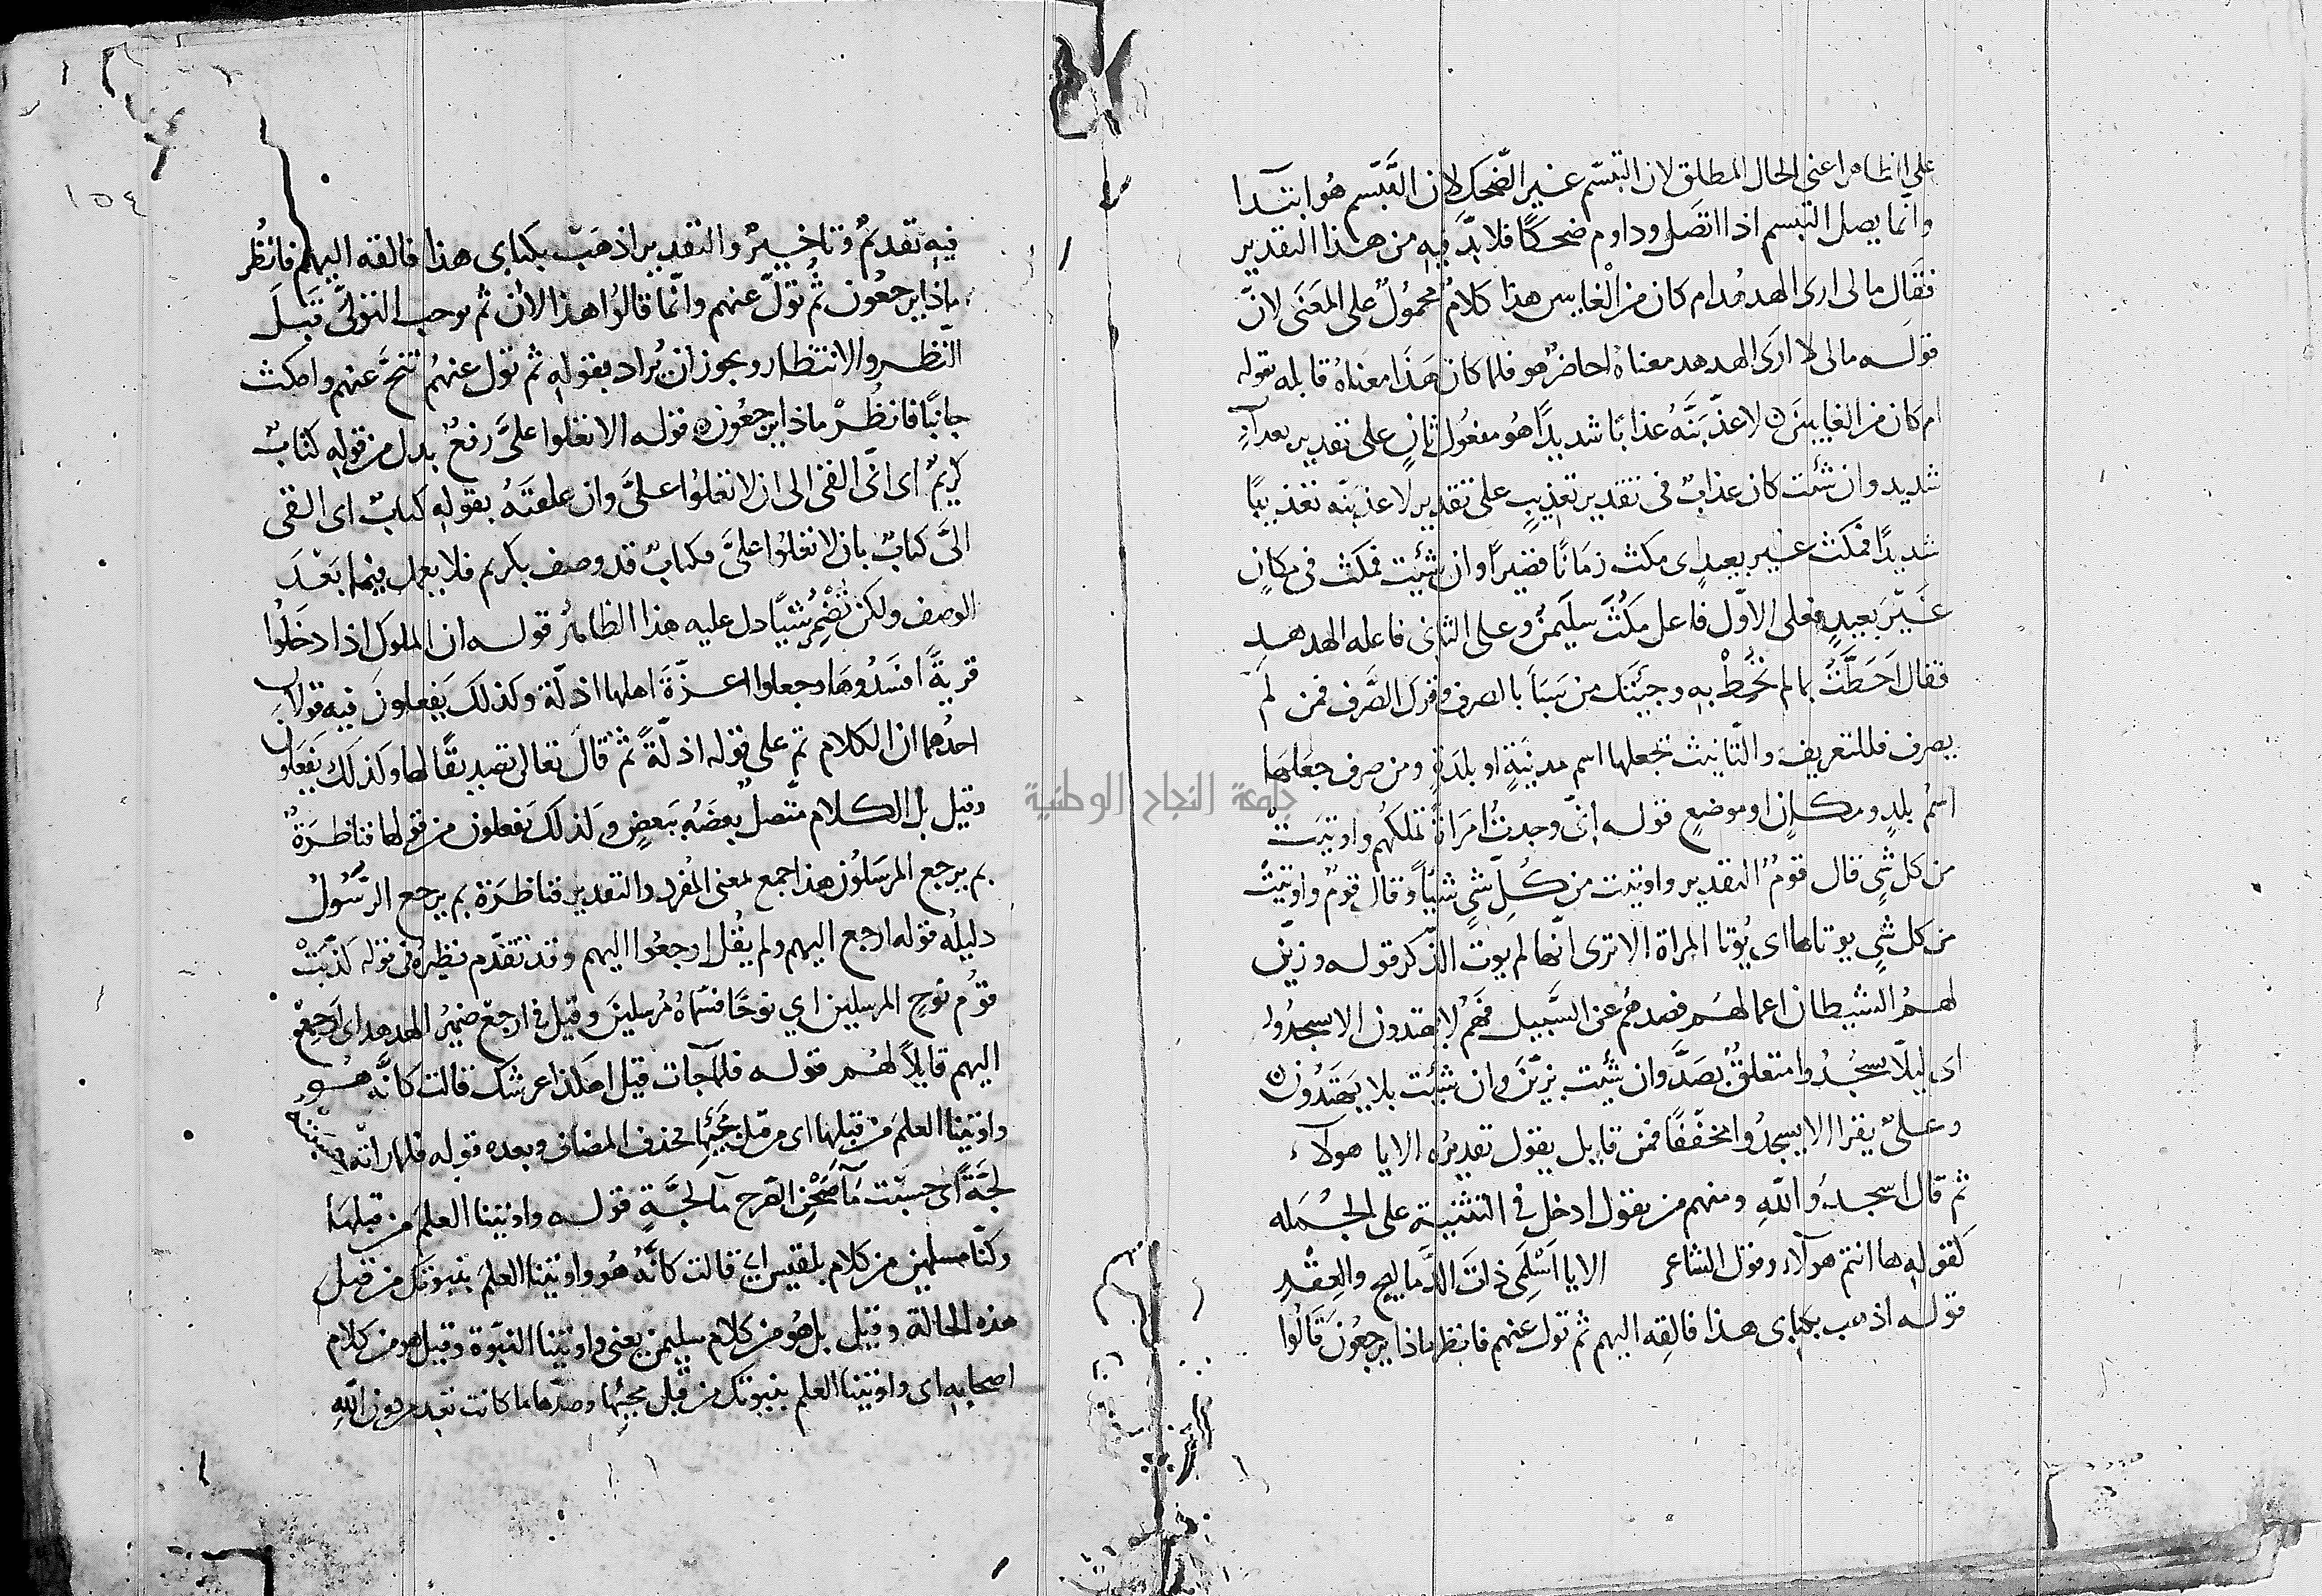 على الظاهر اعنى الحال المطلق لان التبسّم غير الضّحك لان التَّبَسّم هُو ابتدآ
وانّما يصل التبسم اذا اتصَل وداوم ضحكًا فلا بدَّ فيهِ من هذا التقدير
فقَال مالى لا ارى الهدهُد ام كان من الْغايبين هذا كلامٌ محمُولٌ على المعَنَى لانّ
قوله مالى لا ارَى الهدهد معناهُ احاضرٌ هو فلما كان هَذَا معناهُ قابله بقوله
ام كان من الغايبينَ لاعذّبَنَّهُ عذابًا شديدًا هُو مفعُول ثانٍ على تقدير بعذابٍ
شديد وان شئت كان عذابٌ فى تقدير تعذيبٍ على تقدير لاعذبَنّه تعذيبًا
شديدًا فمكث غير بعيدٍ اى مكث زمَانًا قصيرًا وان شئيت فمكث فى مكانٍ
غَيْرَ بَعيدٍ فعلى الاوّل فاعل مَكُثَ سليَمنُ وعلى الثانى فاعله الهدهد
فقال احَطَّتُ بما لم تُحُطْ به وجيئتك من سَبَأ بالصرف وترك الصَّرف فمن لم
يصرف فللتعريف والتّانيث تجعلها اسم مدينَةٍ او بلدَةٍ ومن صرف جعَلهَا
اسمُ بلدٍ ومكانٍ او موضعٍ قوله إنّى وجدتُ امرَاةً تملكُهم واوتيَتْ
من كل شىٍ قال قومٌ التقدير واوتيت من كُلّ شىٍ شيًا وقال قومٌ واوتيَتْ
من كل شىٍ يوتاها اى يُوتا المراة الا ترى انّها لم يوت الذّكر قوله وزيّن
لهمُ الشيطان اعمالهُم فصدهُم عن السَّبيل فهُم لا يهتدون الا يسجُدُوا
اى ليلّا يسجُدُوا متعلقٌ بصَدَّ وان شيئت بزيّنَ وان شيئت بلا يَهتَدُون
وعلىٌ يقرا الا يسجدُوا مخفّفًا فمن قايل يقول تقديرُه الا يا هولآء
ثم قال اسجدُوا لله ومنهم من يقول ادخل فى التثنية على الجُمله
كقولهِ ها انتم هولآء وقول الشاعر الا يا اسْلَمِى ذاتَ الدَّماليج والعِقْدِ
قوله اذهب بكتابى هذا فالقِه اليهم ثم تول عنهم فانظر ماذا يرجعُونَ قالُوا
١٥٤
فيهِ تقديمٌ وتاخيرٌ والتقدير اذهَبْ بكتابى هذا فالقه اليهم فانظُر
ماذا يرجعُون ثُمَّ تولّ عنهم وانّما قالوُا هذا لانّ ثم توجب التولّى قبَل
النّظر والانتظار ويجوز ان يُراد بقولهِ ثم تول عنهُم تنحَّ عنهم وامكث
جانبًا فانظُرْ ماذا يرجعُون قوله الا تعلوا علىَّ رفعٌ بدل من قولهِ كتابٌ
كريمٌ اى انّى القى الى ان لا تعلوُا علىَّ وان علقتَهُ بقوله كتابٌ اى القى
الىَّ كتابٌ بان لا تعلوُا علىَّ فكتابٌ قد وصف بكريم فلا يعمل فيما بَعْدَ
الوصف ولكن تُضْمِر شيًا دل عليه هذا الظاهر قوله ان الملوك اذا دخَلوُا
قريةً افسَدُوهَا وجعلوا اعزّةَ اهلها اذلّة وكذلكَ يَفعلونَ فيهِ قولان
احدُهما ان الكلام تم على قوله اذلّةً ثم قالَ تعالى تصديقًا لها وكذلكَ يَفعَلون
وقيل بل الكلام متّصلٌ بعضَهُ ببَعضٍ وكذلكَ يَفعلون من قولها فناظرَةٌ
بم يرجع المرسَلوُن هذا جمع لمعنى المُفرد والتقدير فناظرَة بم يرجع الرّسُولُ
دليلُه قوله ارجع اليهم ولم يقُل ارجعُوا اليهم وقد تقدّم نظيرهُ فى قوله كذّبتْ
قوْم نوُحٍ المرسلين اي نوحًا فسَمّاهُ مُرسلينَ وقيل فى ارجعْ ضميرُ الهدهد اى ارجعْ
اليهم قايلًا لهُم قوله فلمّا جآت قيل اهكذا عرشك قالت كانَّه هُو
واوتينا العلمَ من قبلها اى من قبل مجيئِها فحذف المضاف وبعده قوله فلما راته حسبته
لجَّةً اى حسبَت مآ صَحْن الصّرح مآ لجَّةٍ قوله واوتينا العلمَ من قبلهَا
وكنّا مسلمين من كلام بلقيس اي قالت كانَّهُ هُو واوتينا العلمَ بنبوتكَ من قبل
هذه الحالة وقيل بل هُو من كلام سليمن يعنى واوتينا النبّوة وقيل هو من كلام
اصحابهِ اى واوتينا العلم بنبوتك من قبل مجيئها وصدّها ما كانت تعبد من دون الله
جامعة النجاح الوطنية